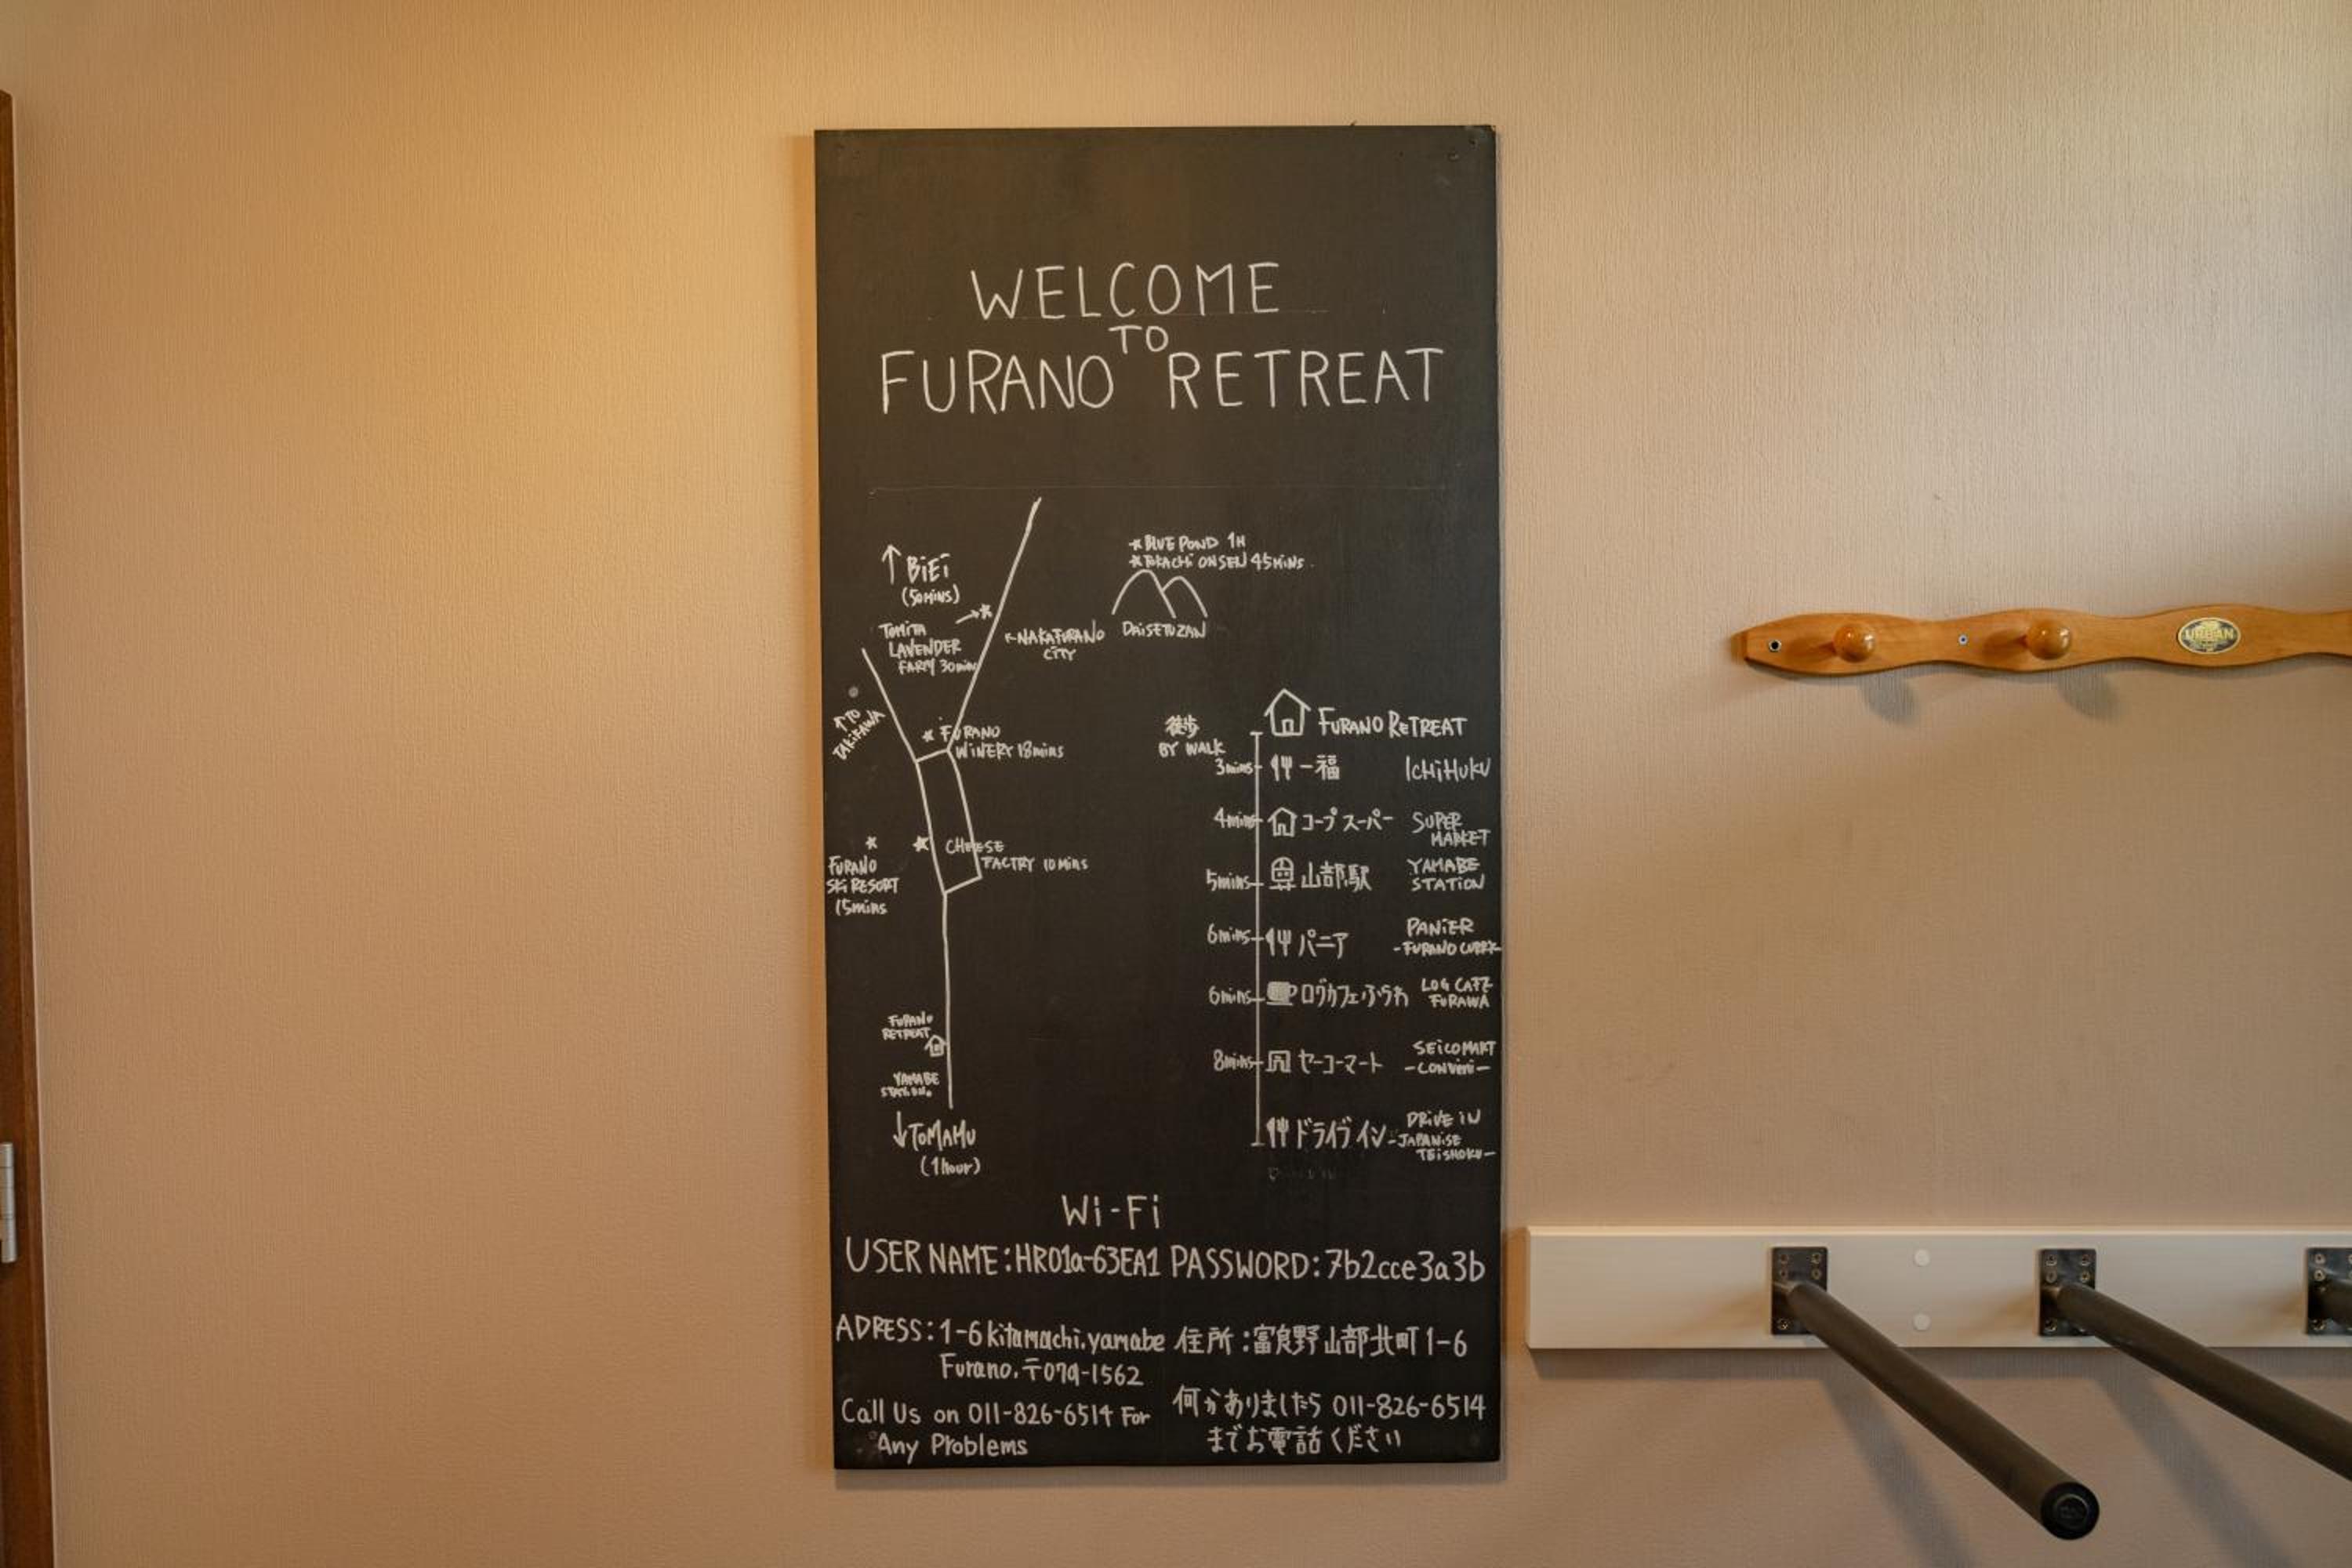 WELCOME
TO
FURANO RETREAT
↑ BiEi
(50MiNS)
★ BLUE POND 1H
★ TOKACHi ONSEN 45MiNS
DAiSETUZAN
TOMiTA
LAVENDER
FARM 30mins
←NAKAFURANO
CiTY
↑TO
TAKiKAWA
★ FURANO
WiNERY 18mins
★
FURANO
SKi RESORT
15mins
★ CHEESE
FACTRY 10Mins
FURANO
RETREAT
YAMABE
STATiON.
↓TOMAMU
(1hour)
徒歩
BY WALK
FURANO RETREAT
3mins 一福 ICHiHUKU
4mins コープスーパー SUPER
MARKET
5mins 山部駅 YAMABE
STATiON
6mins パニア PANiER
-FURANO CURRY-
6mins ログカフェふらわ LOG CAFE
FURAWA
8mins セーコーマート SEiCOMART
-CONViNi-
ドライブイン DRiVE iN
-JAPANiSE
TEiSHOKU-
Wi-Fi
USER NAME:HR01a-63EA1 PASSWORD:7b2cce3a3b
ADRESS:1-6 kitamachi.yamabe
Furano.〒079-1562
住所:富良野山部北町1-6
Call Us on 011-826-6514 For
Any Problems
何かありましたら 011-826-6514
までお電話ください
URBAN